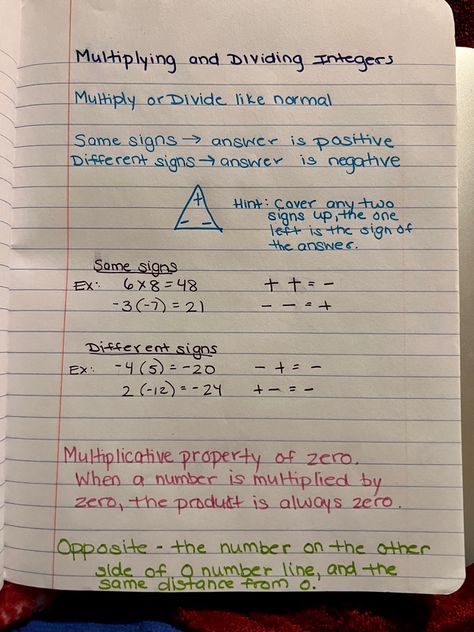 Multiplying and Dividing Integers
Multiply or Divide like normal
Same signs → answer is positive
Different signs → answer is negative
+
- -
Hint: Cover any two
signs up, the one
left is the sign of
the answer.
Same signs
Ex: 6 x 8 = 48 + + = -
-3(-7) = 21 - - = +
Different signs
Ex: -4(5) = -20 - + = -
2(-12) = -24 + - = -
Multiplicative property of zero.
When a number is multiplied by
zero, the product is always zero.
Opposite - the number on the other
side of 0 number line, and the
same distance from 0.